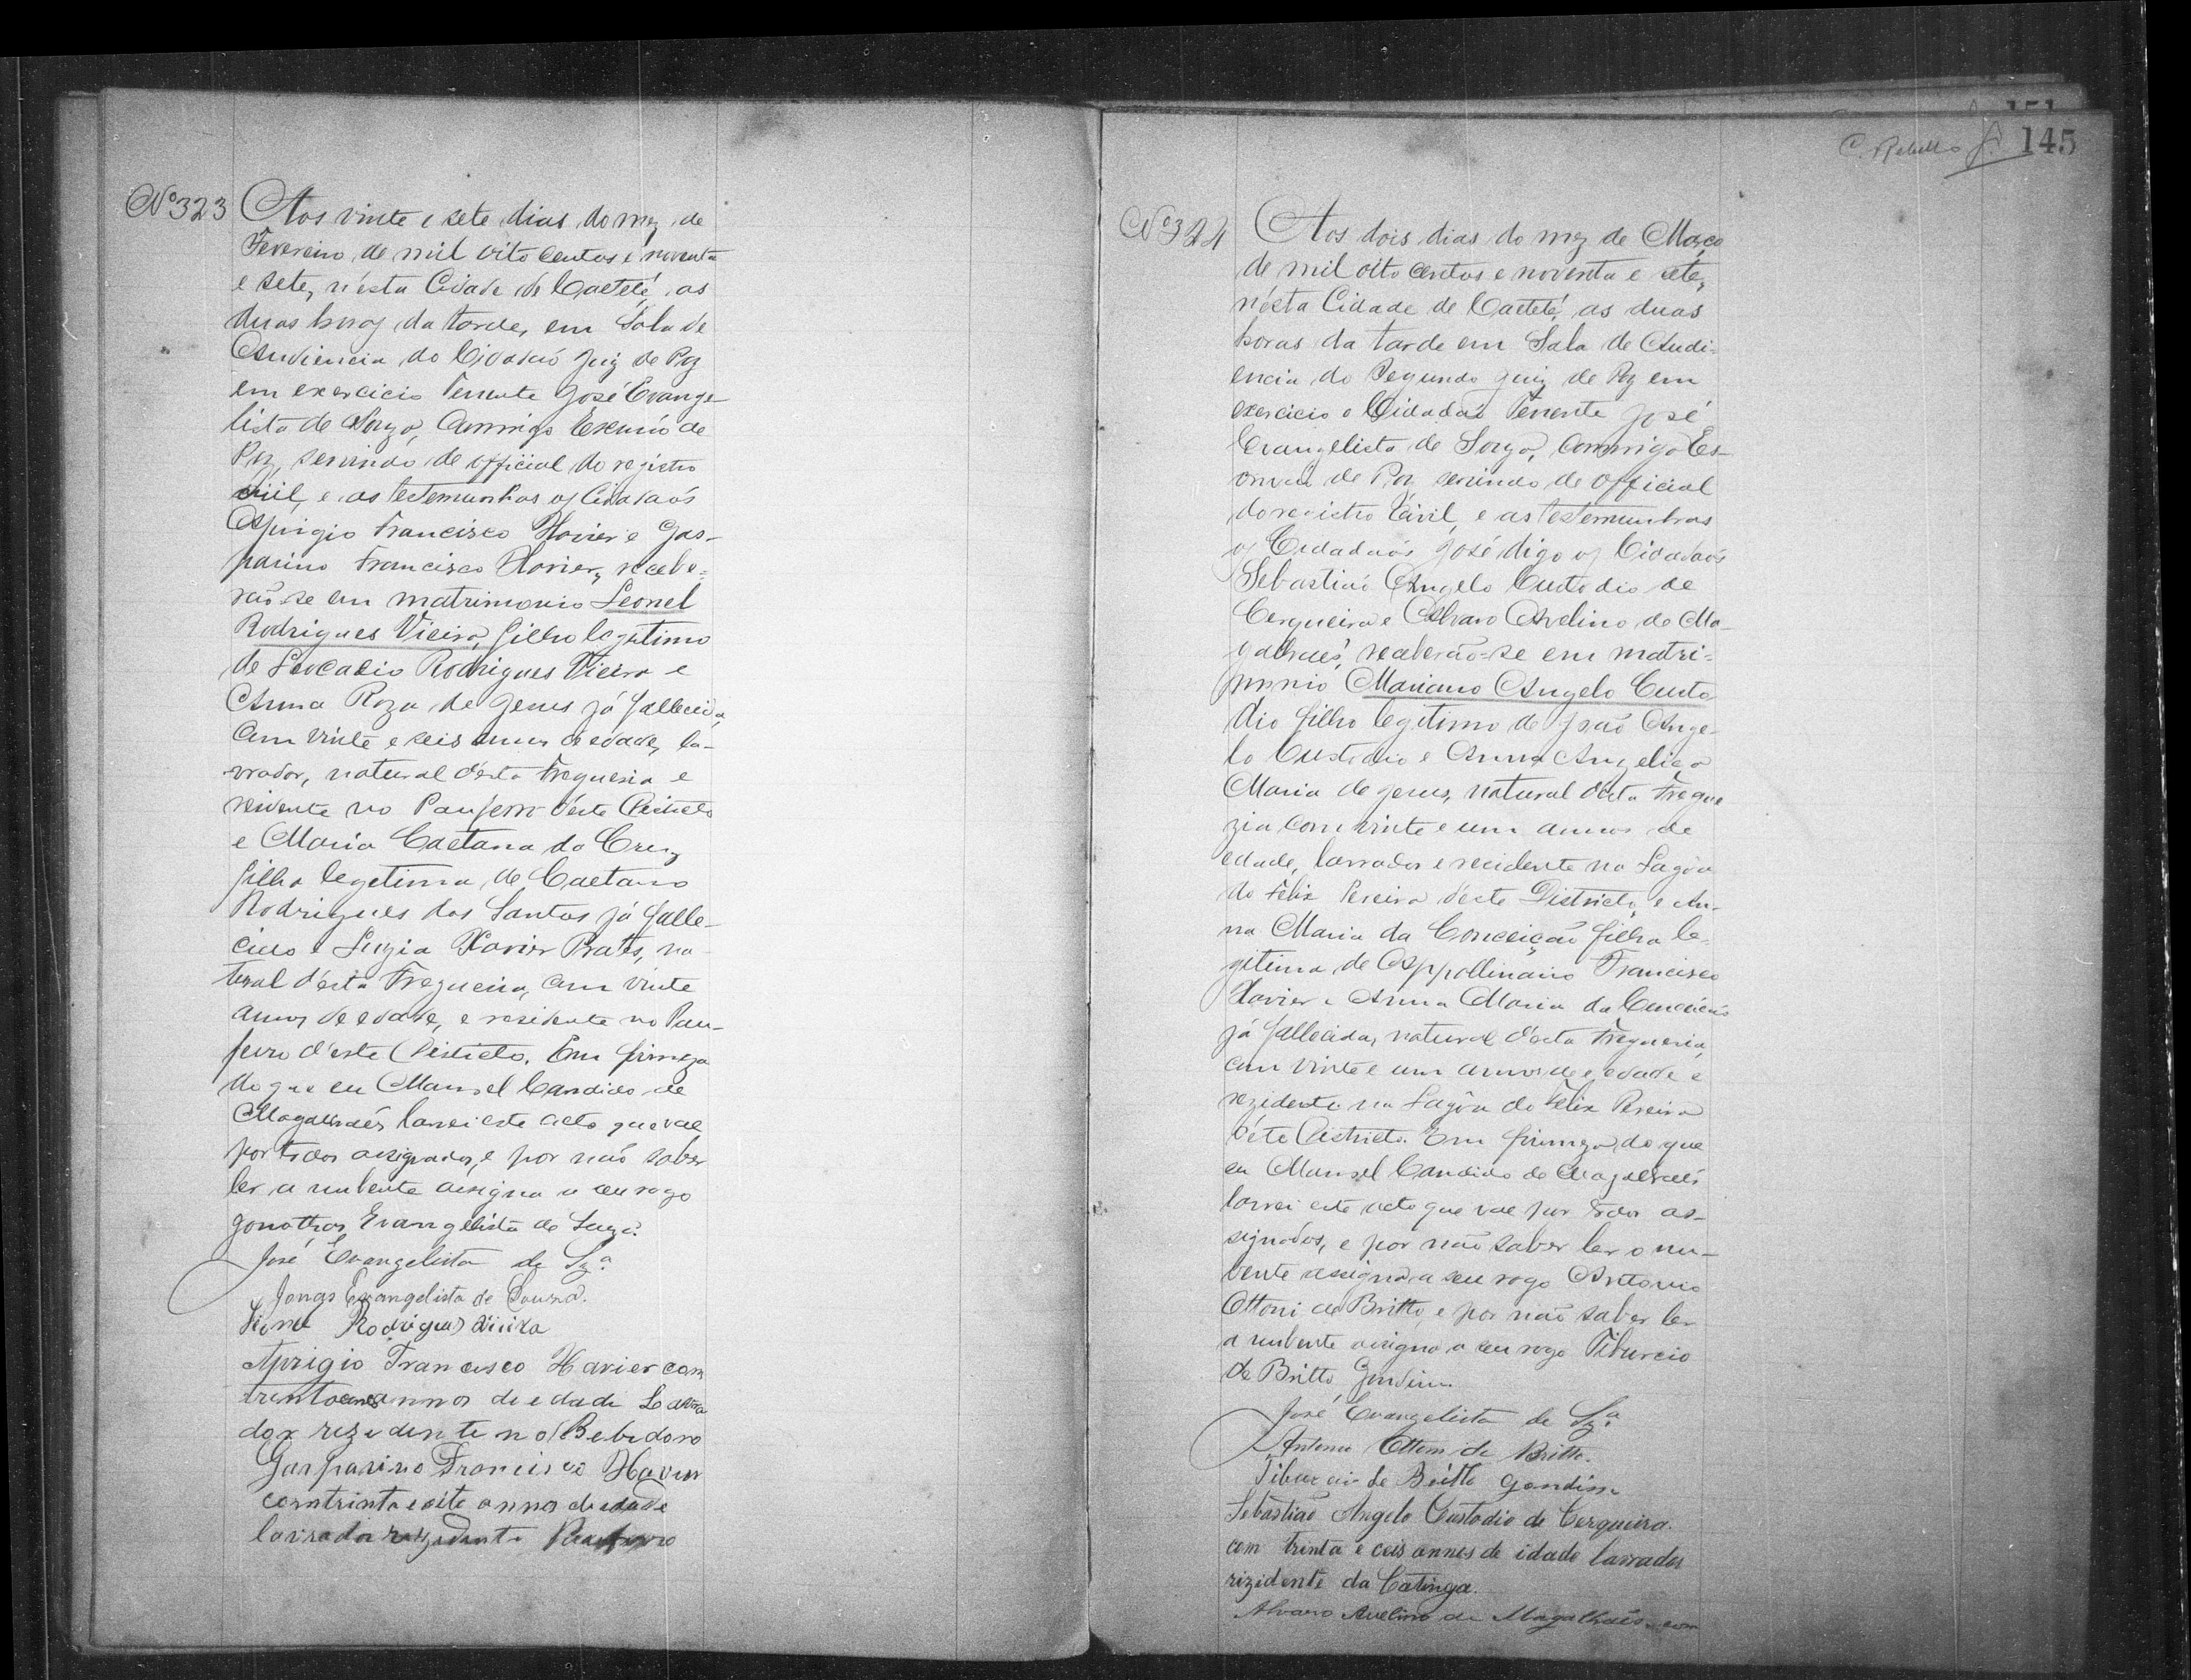 Nº 323
Aos vinte e sete dias do mez de
Fevereiro de mil oito centos e noventa
e sete, n'esta Cidade de Caeteté, as
duas horas da tarde, em Sala de
Audiencia do Cidadão Juiz de Paz
em exercicio Tenente José Evange-
lista de Souza, commigo Escrivão de
Paz, servindo de official do registro
civil, e as testemunhas os Cidadaõs
Aprigio Francisco Xavier e Gas-
parino Francisco Xavier, recebe-
raõ-se em matrimonio Leonel
Rodrigues Vieira, filho legitimo
de Leocadio Rodrigues Vieira e
Anna Roza de Jesus já fallecida,
com vinte e seis annos de edade, la-
vrador, natural d'esta Freguesia e
residente no Pauferro d'este Districto
e Maria Caetana da Cruz
filha legetima de Caetano
Rodrigues dos Santos já falle-
cido e Luzia Xavier Prates, na-
tural d'esta Freguesia, com vinte
annos de edade, e residente no Pau-
ferro d'este Districto. Em firmeza
do que eu Manoel Candido de
Magalhaẽs lavrei este acto que vae
por todos assignados, e por naõ saber
ler a nubente assigna a seu rogo
Jonathas Evangelista de Souza.
José Evangelista de Sza.
Jonas Evangelista de Souza.
Leonel Rodrigues Vieira
Aprigio Francisco Xavier com
trenta annos de edade Lavra
dor rezidente no Bebedoro
Gasparino Francisco Xavier
com trinta e sete annos de edade
lavrador rezidente Pauferro
C. Rebello 145
151
Nº 324
Aos dois dias do mez de Março
de mil oito centos e noventa e sete,
nésta Cidade de Caeteté, as duas
horas da tarde em Sala de Audi-
encia do Segundo Juiz de Paz em
exercicio o Cidadaõ Tenente José
Evangelista de Souza, commigo Es-
crivaõ de Paz servindo de official
do registro Civil, e as testemunhas
os Cidadaõs José digo os Cidadaõs
Sebastiaõ Angelo Custodio de
Cerqueira e Alvaro Avelino de Ma-
galhaẽs, receberaõ-se em matri-
monio Mariano Angelo Custo-
dio filho legitimo de Joaõ Ange-
lo Custodio e Anna Angelica
Maria de Jesus, natural d'esta Fregue
zia com vinte e um annos de
edade, lavrador e recidente na Lagôa
do Felix Pereira d'este Districto, e An-
na Maria da Conceição filha le-
gitima de Appollinario Francisco
Xavier e Anna Maria da Conceiçaõ
já fallecida, natural d'esta Freguesia,
com vinte e um annos de edade e
rezidente na Lagôa do Felix Pereira
d'este Districto. Em firmeza do que
eu Manoel Candido de Magalhaẽs
lavrei este acto que vae por todos as-
signados, e por naõ saber ler o nu-
bente assigna a seu rogo Antonio
Ottoni de Britto, e por naõ saber ler
a nubente assigna a seu rogo Tiburcio
de Britto Gondim.
José Evangelista de Sza.
Antonio Ottoni de Britto.
Tiburcio de Britto Gondim
Sebastiaõ Angelo Custodio de Cerqueira.
com trinta e ceis annos de idade lavrador
rizidente da Catinga.
Alvaro Avelino de Magalhães com